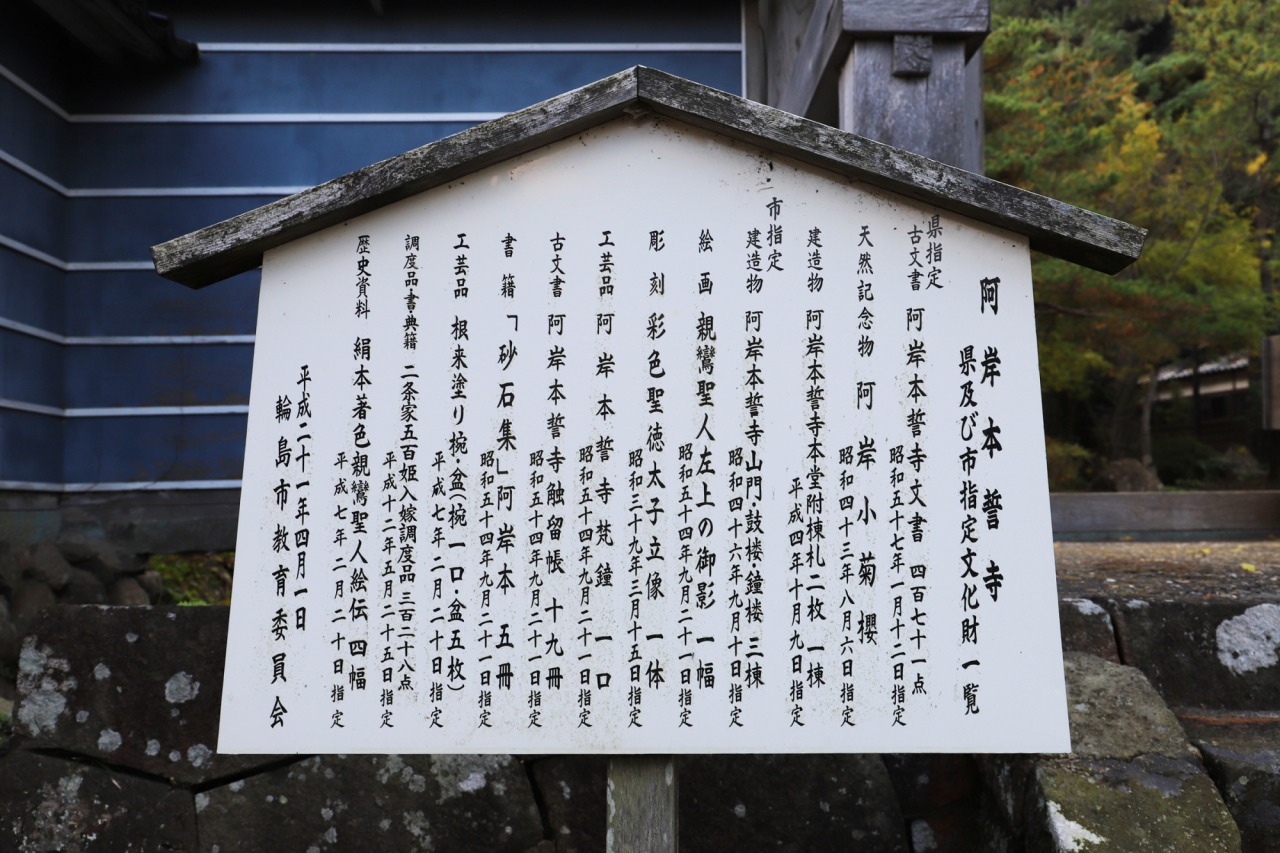 阿岸本誓寺
県及び市指定文化財一覧
県指定
古文書 阿岸本誓寺文書 四百七十一点
昭和五十七年一月十二日指定
天然記念物 阿岸小菊櫻
昭和四十三年八月六日指定
建造物 阿岸本誓寺本堂附棟札二枚 一棟
平成四年十月九日指定
市指定
建造物 阿岸本誓寺山門・鼓楼・鐘楼 三棟
昭和四十六年九月十日指定
絵画 親鸞聖人左上の御影 一幅
昭和五十四年九月二十一日指定
彫刻 彩色聖徳太子立像 一体
昭和三十九年三月十五日指定
工芸品 阿岸本誓寺梵鐘 一口
昭和五十四年九月二十一日指定
古文書 阿岸本誓寺触留帳 十九冊
昭和五十四年九月二十一日指定
書籍 「砂石集」阿岸本 五冊
昭和五十四年九月二十一日指定
工芸品 根来塗り椀・盆(椀一口・盆五枚)
平成七年二月二十日指定
調度品・書・典籍 二条家五百姫入嫁調度品 三百二十八点
平成十二年五月二十五日指定
歴史資料 絹本著色親鸞聖人絵伝 四幅
平成七年二月二十日指定
平成二十一年四月一日
輪島市教育委員会